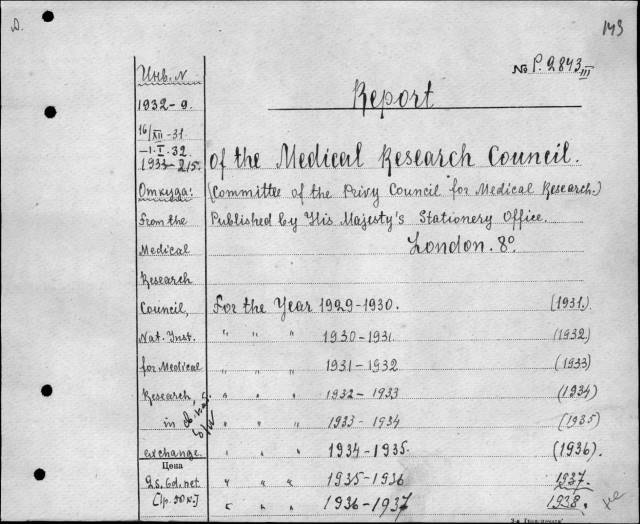 D.
143
№ P. 2843 III
Report
of the Medical Research Council.
(Committee of the Privy Council for Medical Research.)
Published by His Majesty's Stationery Office.
London. 8°.
Инв. N
1932-9.
16/XII-31
-1.I.32.
1933-215.
Откуда:
From the
Medical
Research
Council,
Nat. Inst.
for Medical
Research,
in
exchange.
Цена
2s. 6d. net
For the Year 1929-1930. (1931.)
" " " 1930-1931 (1932)
" " " 1931-1932 (1933)
" " " 1932-1933 (1934)
" " " 1933-1934 (1935)
" " " 1934-1935. (1936).
" " " 1935-1936 1937.
" " " 1936-1937 1938.